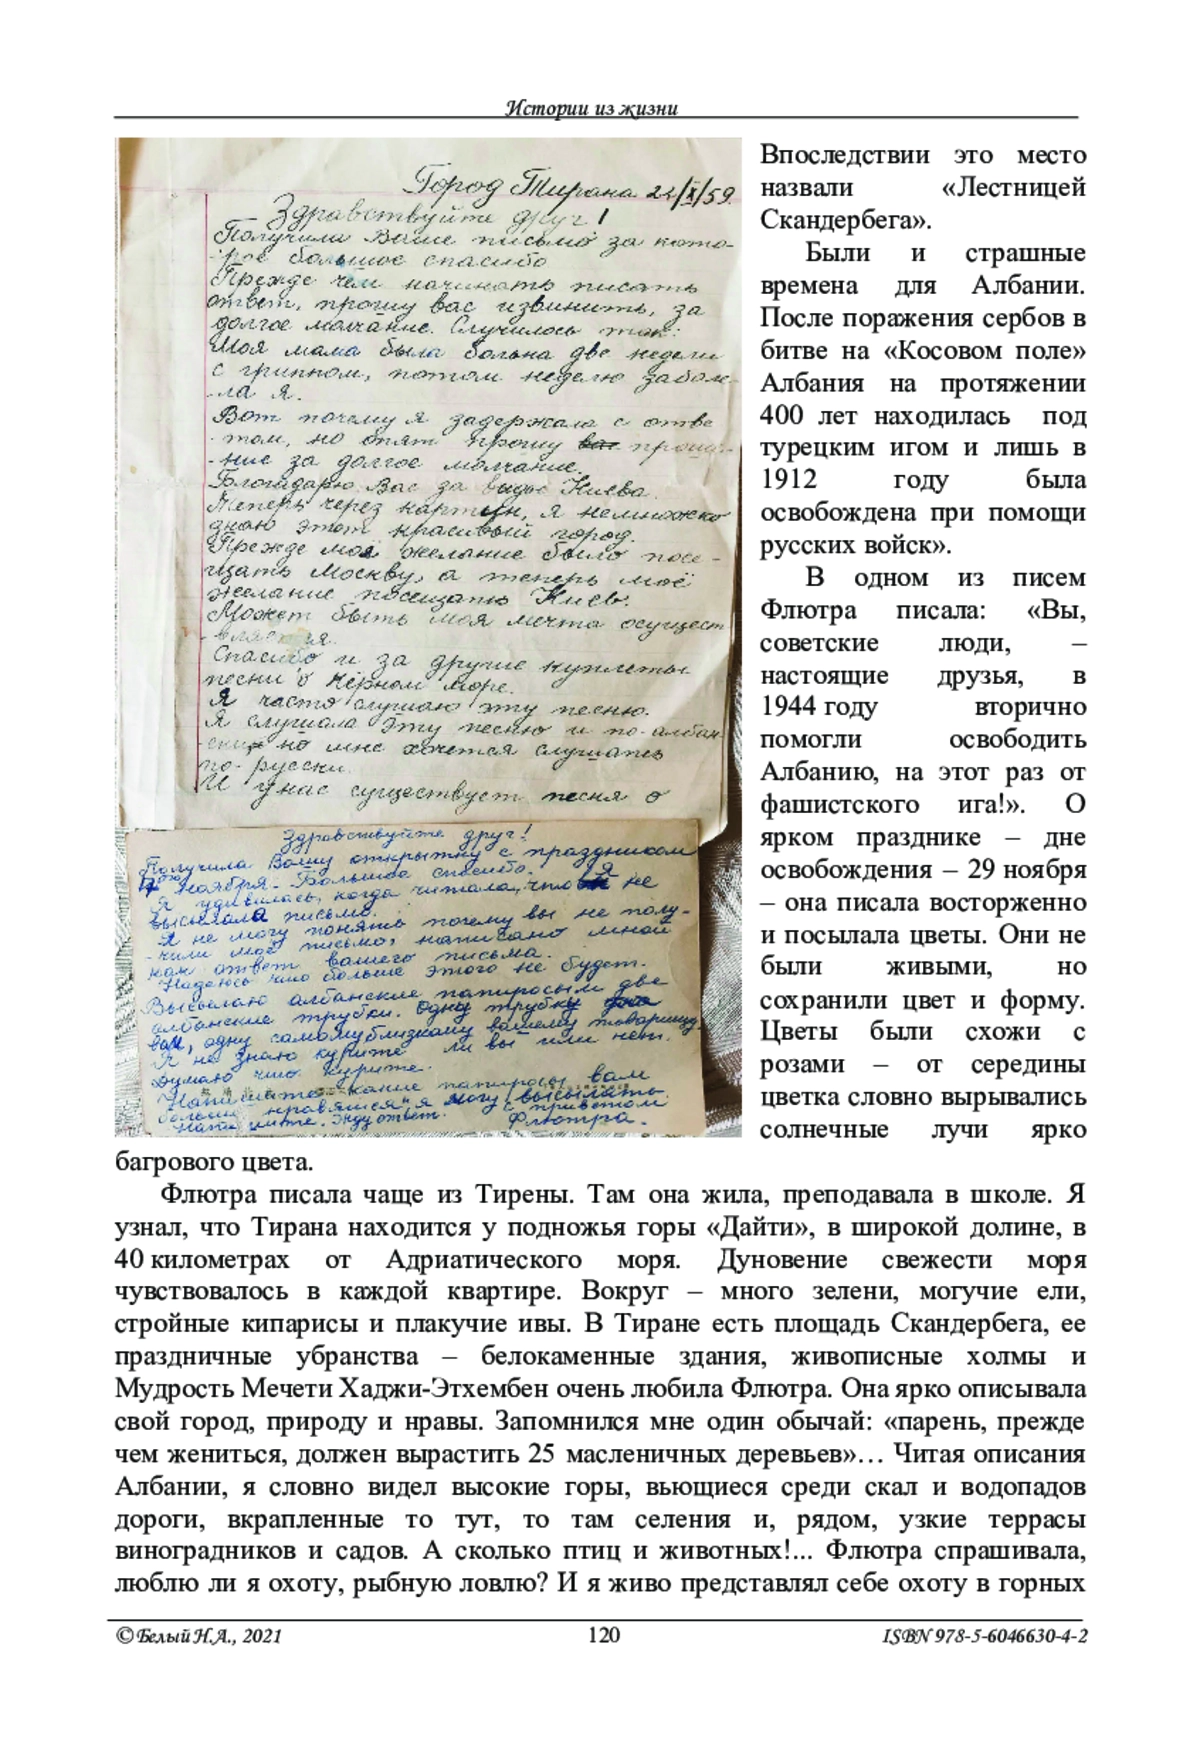 Истории из жизни
Город Тирана 24/X/59.
Здравствуйте друг!
Получила Ваше письмо за кото-
-рое большое спасибо
Прежде чем начинать писать
ответ, прошу вас извинить, за
долгое молчание. Случилось так:
Моя мама была больна две недели
с гриппом, потом неделю заболе-
-ла я.
Вот почему я задержала с отве
-том, но опят прошу вас проще-
-ние за долгое молчание.
Благадарю Вас за виды Киева.
Теперь через картин, я немножко
знаю этот красивый город.
Прежде моя желание было посе-
щать Москву, а теперь моё
желание посещать Киев.
Может быть моя мечта осуществ
-вляется.
Спасибо и за другие куплеты
песни о Чёрном море.
Я часто слушаю эту песню.
Я слушала эту песню и по-албан
-ски но мне хочется слушать
по-русски.
И у нас существует песня о
Здравствуйте друг!
Получила Вашу открытку с праздником
7ого ноября. Большое спасибо.
Я удивилась, когда читала, что я не
высылала письмо.
Я не могу понять почему вы не полу-
-чили моё письмо, написано мной
как ответ вашего письма.
Надеюсь что больше этого не будет.
Высылаю албанские папиросы две
албанские трубки. Одну трубку
вам, одну самому близкому вашему товарищу.
Я не знаю курите ли вы или нет.
Думаю что курите.
Напишите какие папиросы вам
больше нравятся я могу высылать.
Напишите. Жду ответ. С приветом
Флютра.
Впоследствии это место
назвали «Лестницей
Скандербега».
Были и страшные
времена для Албании.
После поражения сербов в
битве на «Косовом поле»
Албания на протяжении
400 лет находилась под
турецким игом и лишь в
1912 году была
освобождена при помощи
русских войск».
В одном из писем
Флютра писала: «Вы,
советские люди, –
настоящие друзья, в
1944 году вторично
помогли освободить
Албанию, на этот раз от
фашистского ига!». О
ярком празднике – дне
освобождения – 29 ноября
– она писала восторженно
и посылала цветы. Они не
были живыми, но
сохранили цвет и форму.
Цветы были схожи с
розами – от середины
цветка словно вырывались
солнечные лучи ярко
багрового цвета.
Флютра писала чаще из Тирены. Там она жила, преподавала в школе. Я
узнал, что Тирана находится у подножья горы «Дайти», в широкой долине, в
40 километрах от Адриатического моря. Дуновение свежести моря
чувствовалось в каждой квартире. Вокруг – много зелени, могучие ели,
стройные кипарисы и плакучие ивы. В Тиране есть площадь Скандербега, ее
праздничные убранства – белокаменные здания, живописные холмы и
Мудрость Мечети Хаджи-Этхембен очень любила Флютра. Она ярко описывала
свой город, природу и нравы. Запомнился мне один обычай: «парень, прежде
чем жениться, должен вырастить 25 масленичных деревьев»… Читая описания
Албании, я словно видел высокие горы, вьющиеся среди скал и водопадов
дороги, вкрапленные то тут, то там селения и, рядом, узкие террасы
виноградников и садов. А сколько птиц и животных!... Флютра спрашивала,
люблю ли я охоту, рыбную ловлю? И я живо представлял себе охоту в горных
© Белый Н.А., 2021
120
ISBN 978-5-6046630-4-2